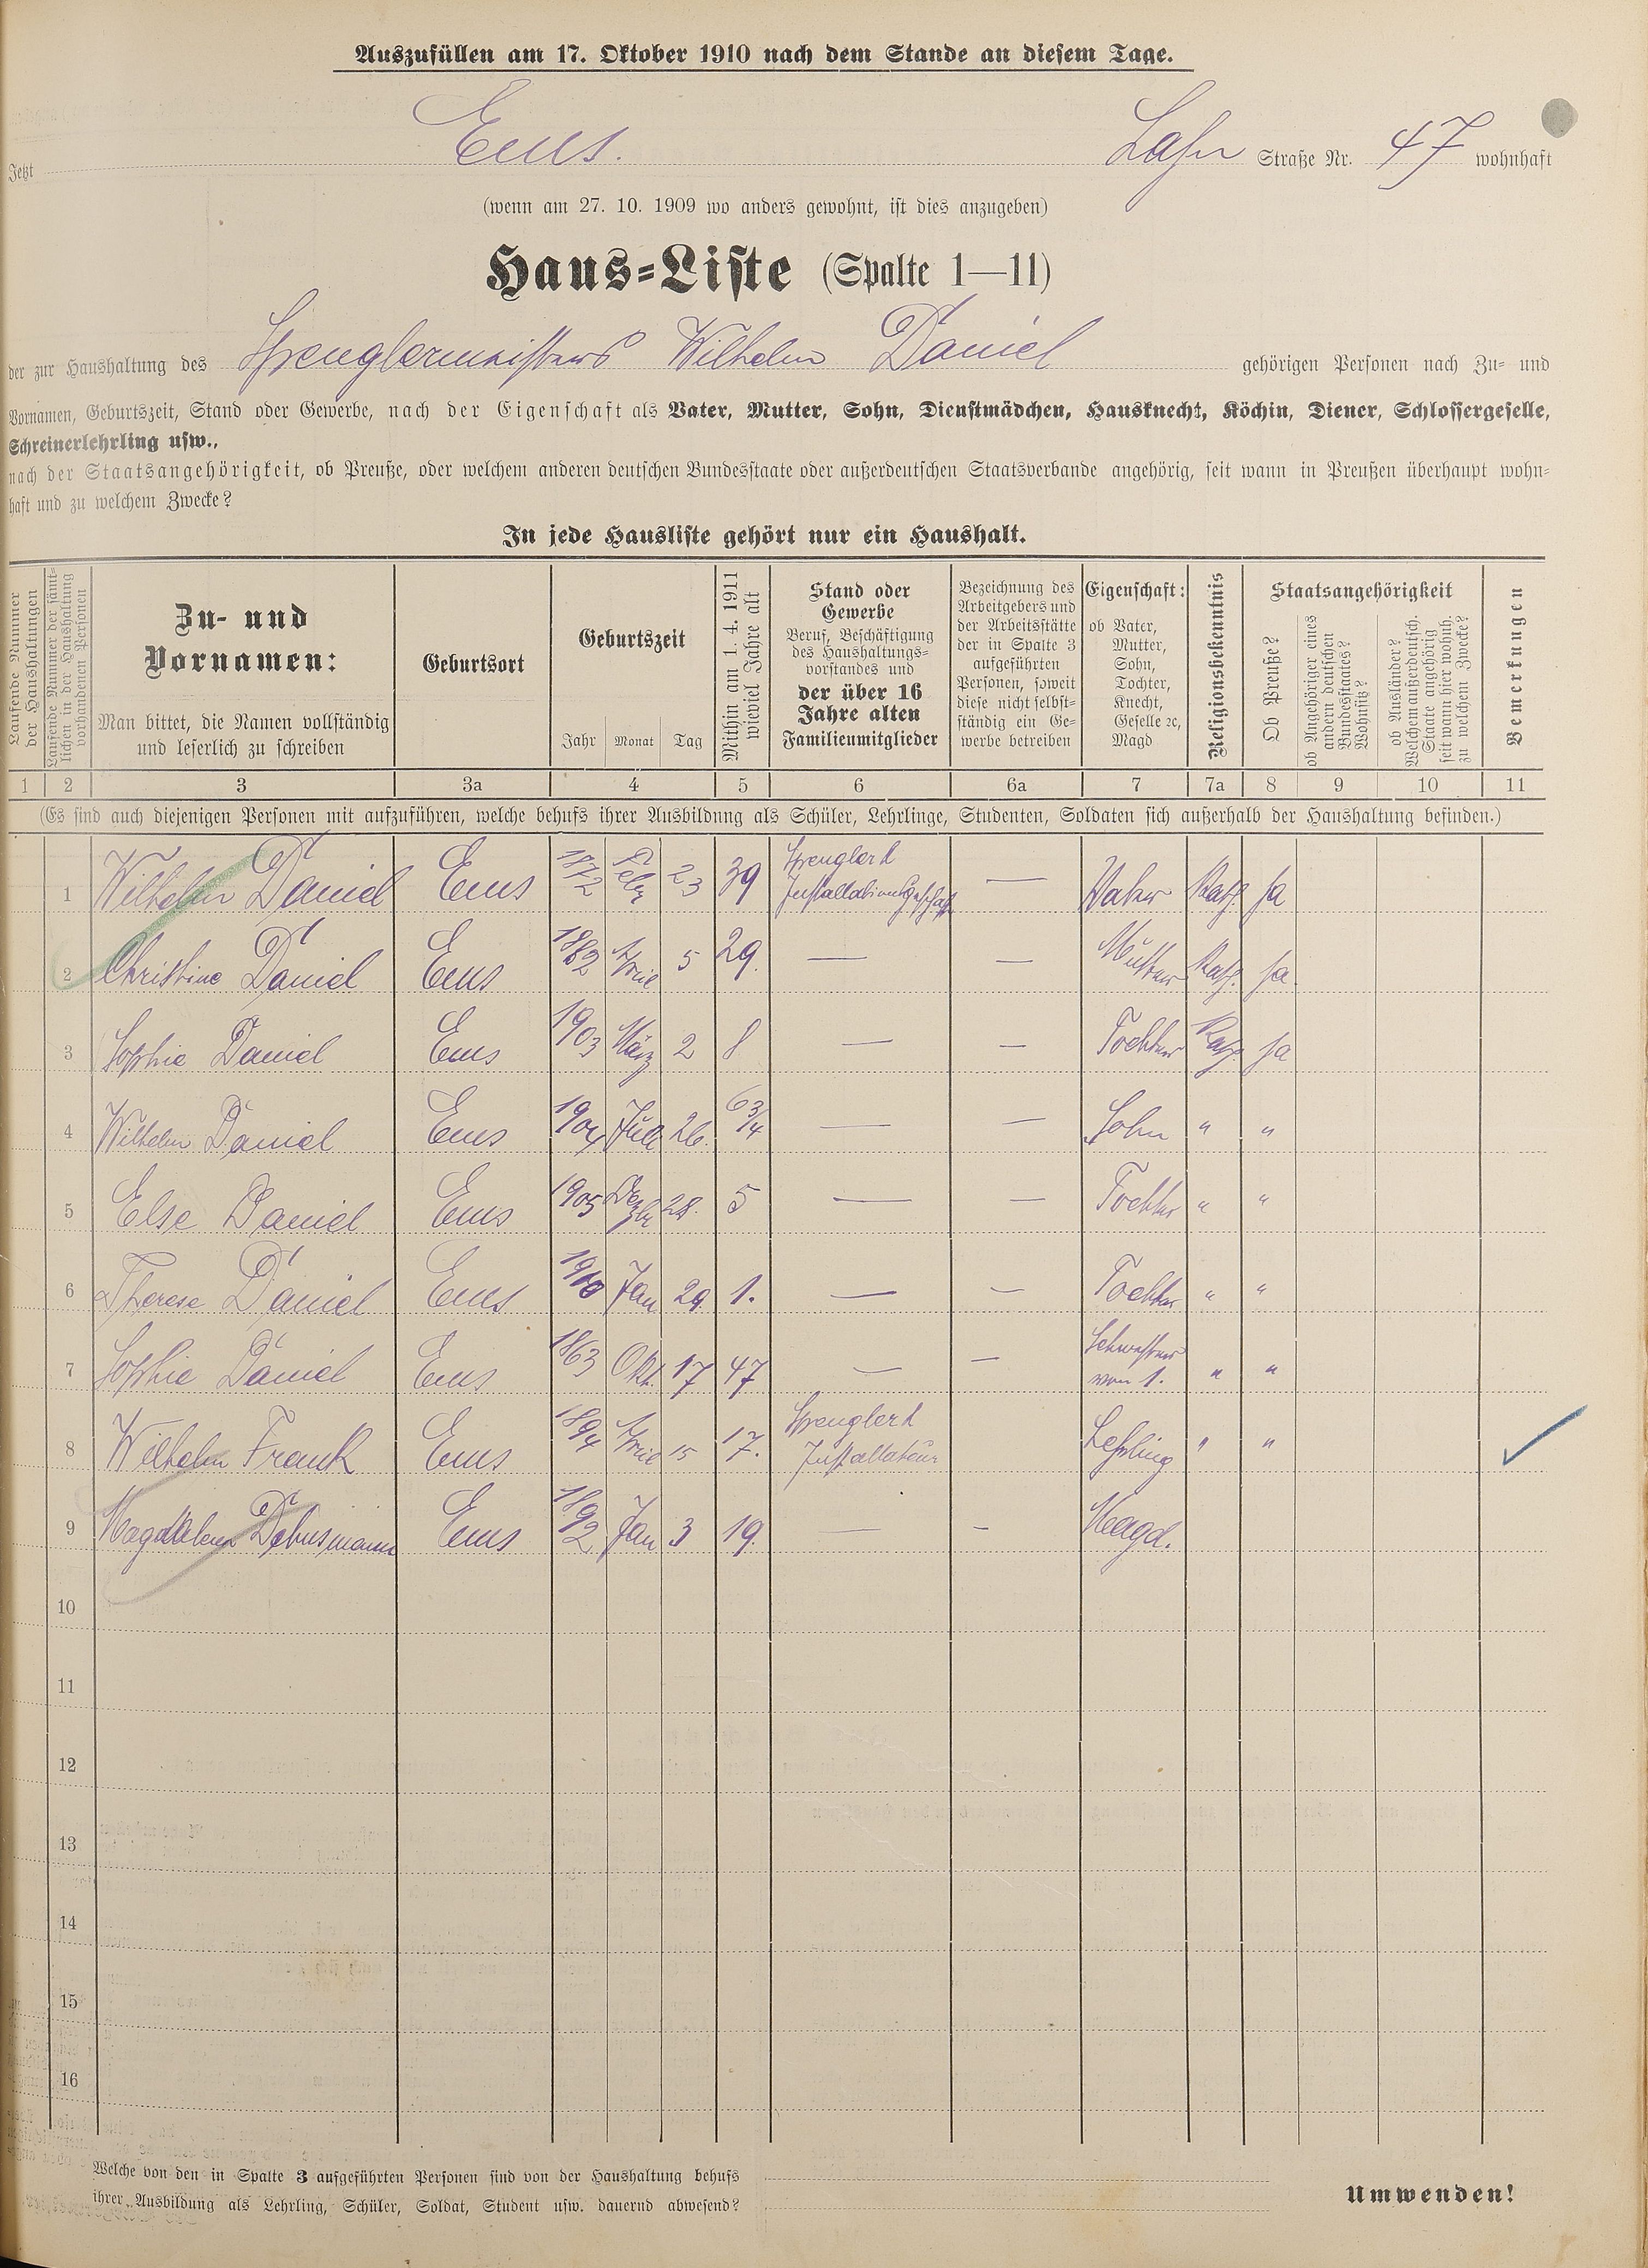 Auszufüllen am 17. Oktober 1910 nach dem Stande an diesem Tage.
Jetzt Ems. Lahn Straße Nr. 47 wohnhaft
(wenn am 27. 10. 1909 wo anders gewohnt, ist dies anzugeben)
Haus-Liste (Spalte 1—11)
der zur Haushaltung des Spenglermeisters Wilhelm Daniel gehörigen Personen nach Zu- und
Vornamen, Geburtszeit, Stand oder Gewerbe, nach der Eigenschaft als Vater, Mutter, Sohn, Dienstmädchen, Hausknecht, Köchin, Diener, Schlossergeselle,
Schreinerlehrling usw.,
nach der Staatsangehörigkeit, ob Preuße, oder welchem anderen deutschen Bundesstaate oder außerdeutschen Staatsverbande angehörig, seit wann in Preußen überhaupt wohn-
haft und zu welchem Zwecke?
In jede Hausliste gehört nur ein Haushalt.
Laufende Nummer
der Haushaltungen
Laufende Nummer der sämt-
lichen in der Haushaltung
vorhandenen Personen
Zu- und
Vornamen:
Man bittet, die Namen vollständig
und leserlich zu schreiben
Geburtsort
Geburtszeit
Jahr Monat Tag
Mithin am 1. 4. 1911
wieviel Jahre alt
Stand oder
Gewerbe
Beruf, Beschäftigung
des Haushaltungs-
vorstandes und
der über 16
Jahre alten
Familienmitglieder
Bezeichnung des
Arbeitgebers und
der Arbeitsstätte
der in Spalte 3
aufgeführten
Personen, soweit
diese nicht selbst-
ständig ein Ge-
werbe betreiben
Eigenschaft:
ob Vater,
Mutter,
Sohn,
Tochter,
Knecht,
Geselle ec,
Magd
Religionsbekenntnis
Staatsangehörigkeit
Ob Preuße?
ob Angehöriger eines
andern deutschen
Bundesstaates?
Wohnsitz?
ob Ausländer?
Welchem außerdeutsch.
Staate angehörig
seit wann hier wohnh.
zu welchem Zwecke?
Bemerkungen
1 2 3 3a 4 5 6 6a 7 7a 8 9 10 11
(Es sind auch diejenigen Personen mit aufzuführen, welche behufs ihrer Ausbildung als Schüler, Lehrlinge, Studenten, Soldaten sich außerhalb der Haushaltung befinden.)
1 Wilhelm Daniel Ems 1872 Febr 23 39 Spengler & Installationsgeschäft — Vater Kath. ja
2 Christine Daniel Ems 1882 April 5 29. — — Mutter Kath. ja
3 Sophie Daniel Ems 1903 März 2 8 — — Tochter Kath ja
4 Wilhelm Daniel Ems 1904 Juli 26. 6 3/4 — — Sohn " "
5 Else Daniel Ems 1905 Dezbr 28. 5 — — Tochter " "
6 Therese Daniel Ems 1910 Jan 29. 1. — — Tochter " "
7 Sophie Daniel Ems 1863 Okt. 17 47 — — Schwester von 1. " "
8 Wilhelm Frank Ems 1894 April 15 17. Spengler & Installateur Lehrling " "
9 Magdalena Debusmann Ems 1892 Jan 3 19. — - Magd.
10
11
12
13
14
15
16
Welche von den in Spalte 3 aufgeführten Personen sind von der Haushaltung behufs
ihrer Ausbildung als Lehrling, Schüler, Soldat, Student usw. dauernd abwesend?
Umwenden!